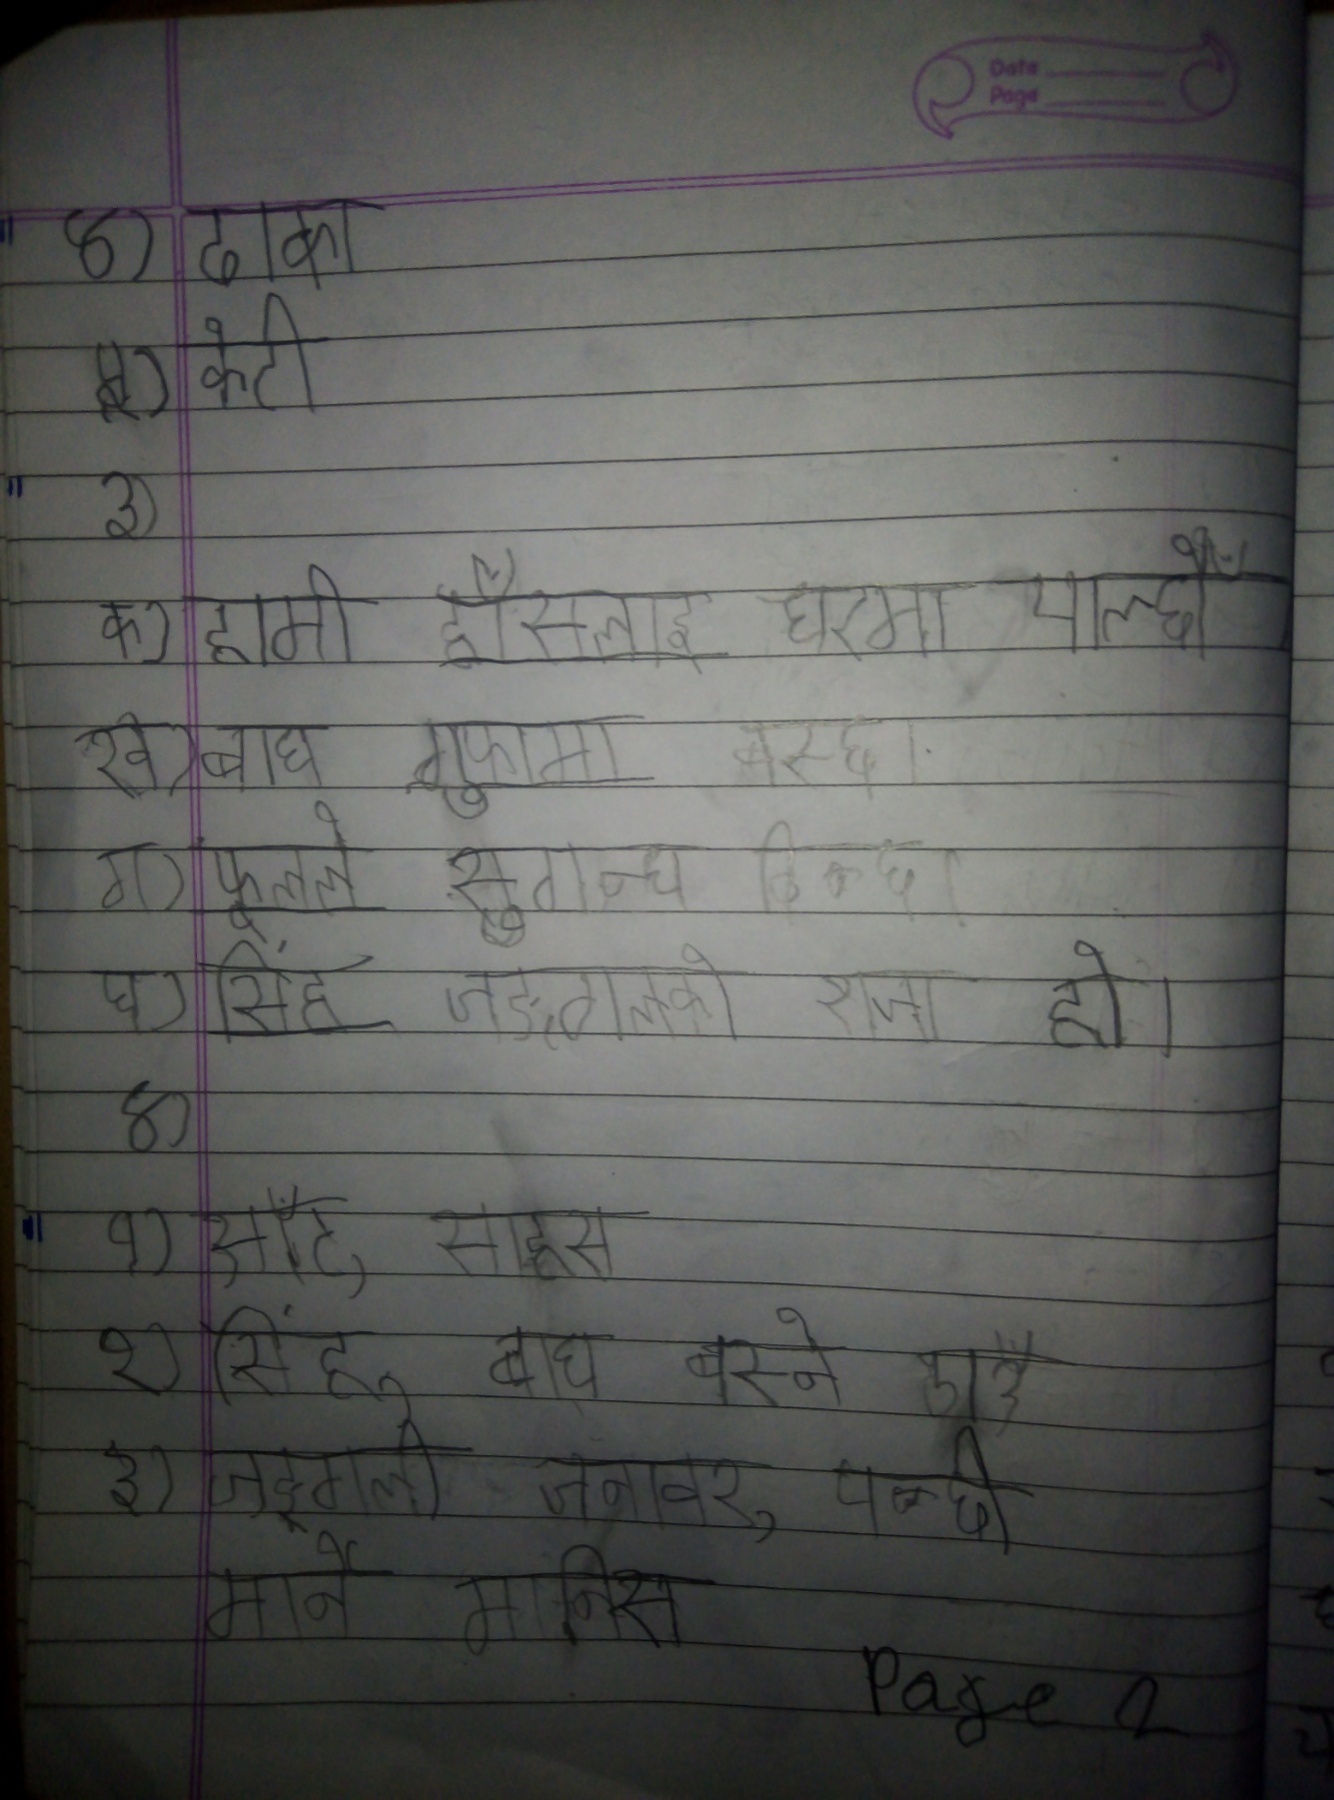 Date
Page
४) ढाका
५) केटी
३)
क) हामी हाँसलाइ घरमा पाल्छौँ
ख) बाघ गुफामा बस्छ।
ग) फूलले सुगन्ध दिन्छ।
घ) सिंह जङ्गलको राजा हो।
४)
१) आँट, साहस
२) सिंह, बाघ बस्ने ठाउँ
३) जङ्गली जनावर, पन्छी
मार्ने मानिस
Page 2